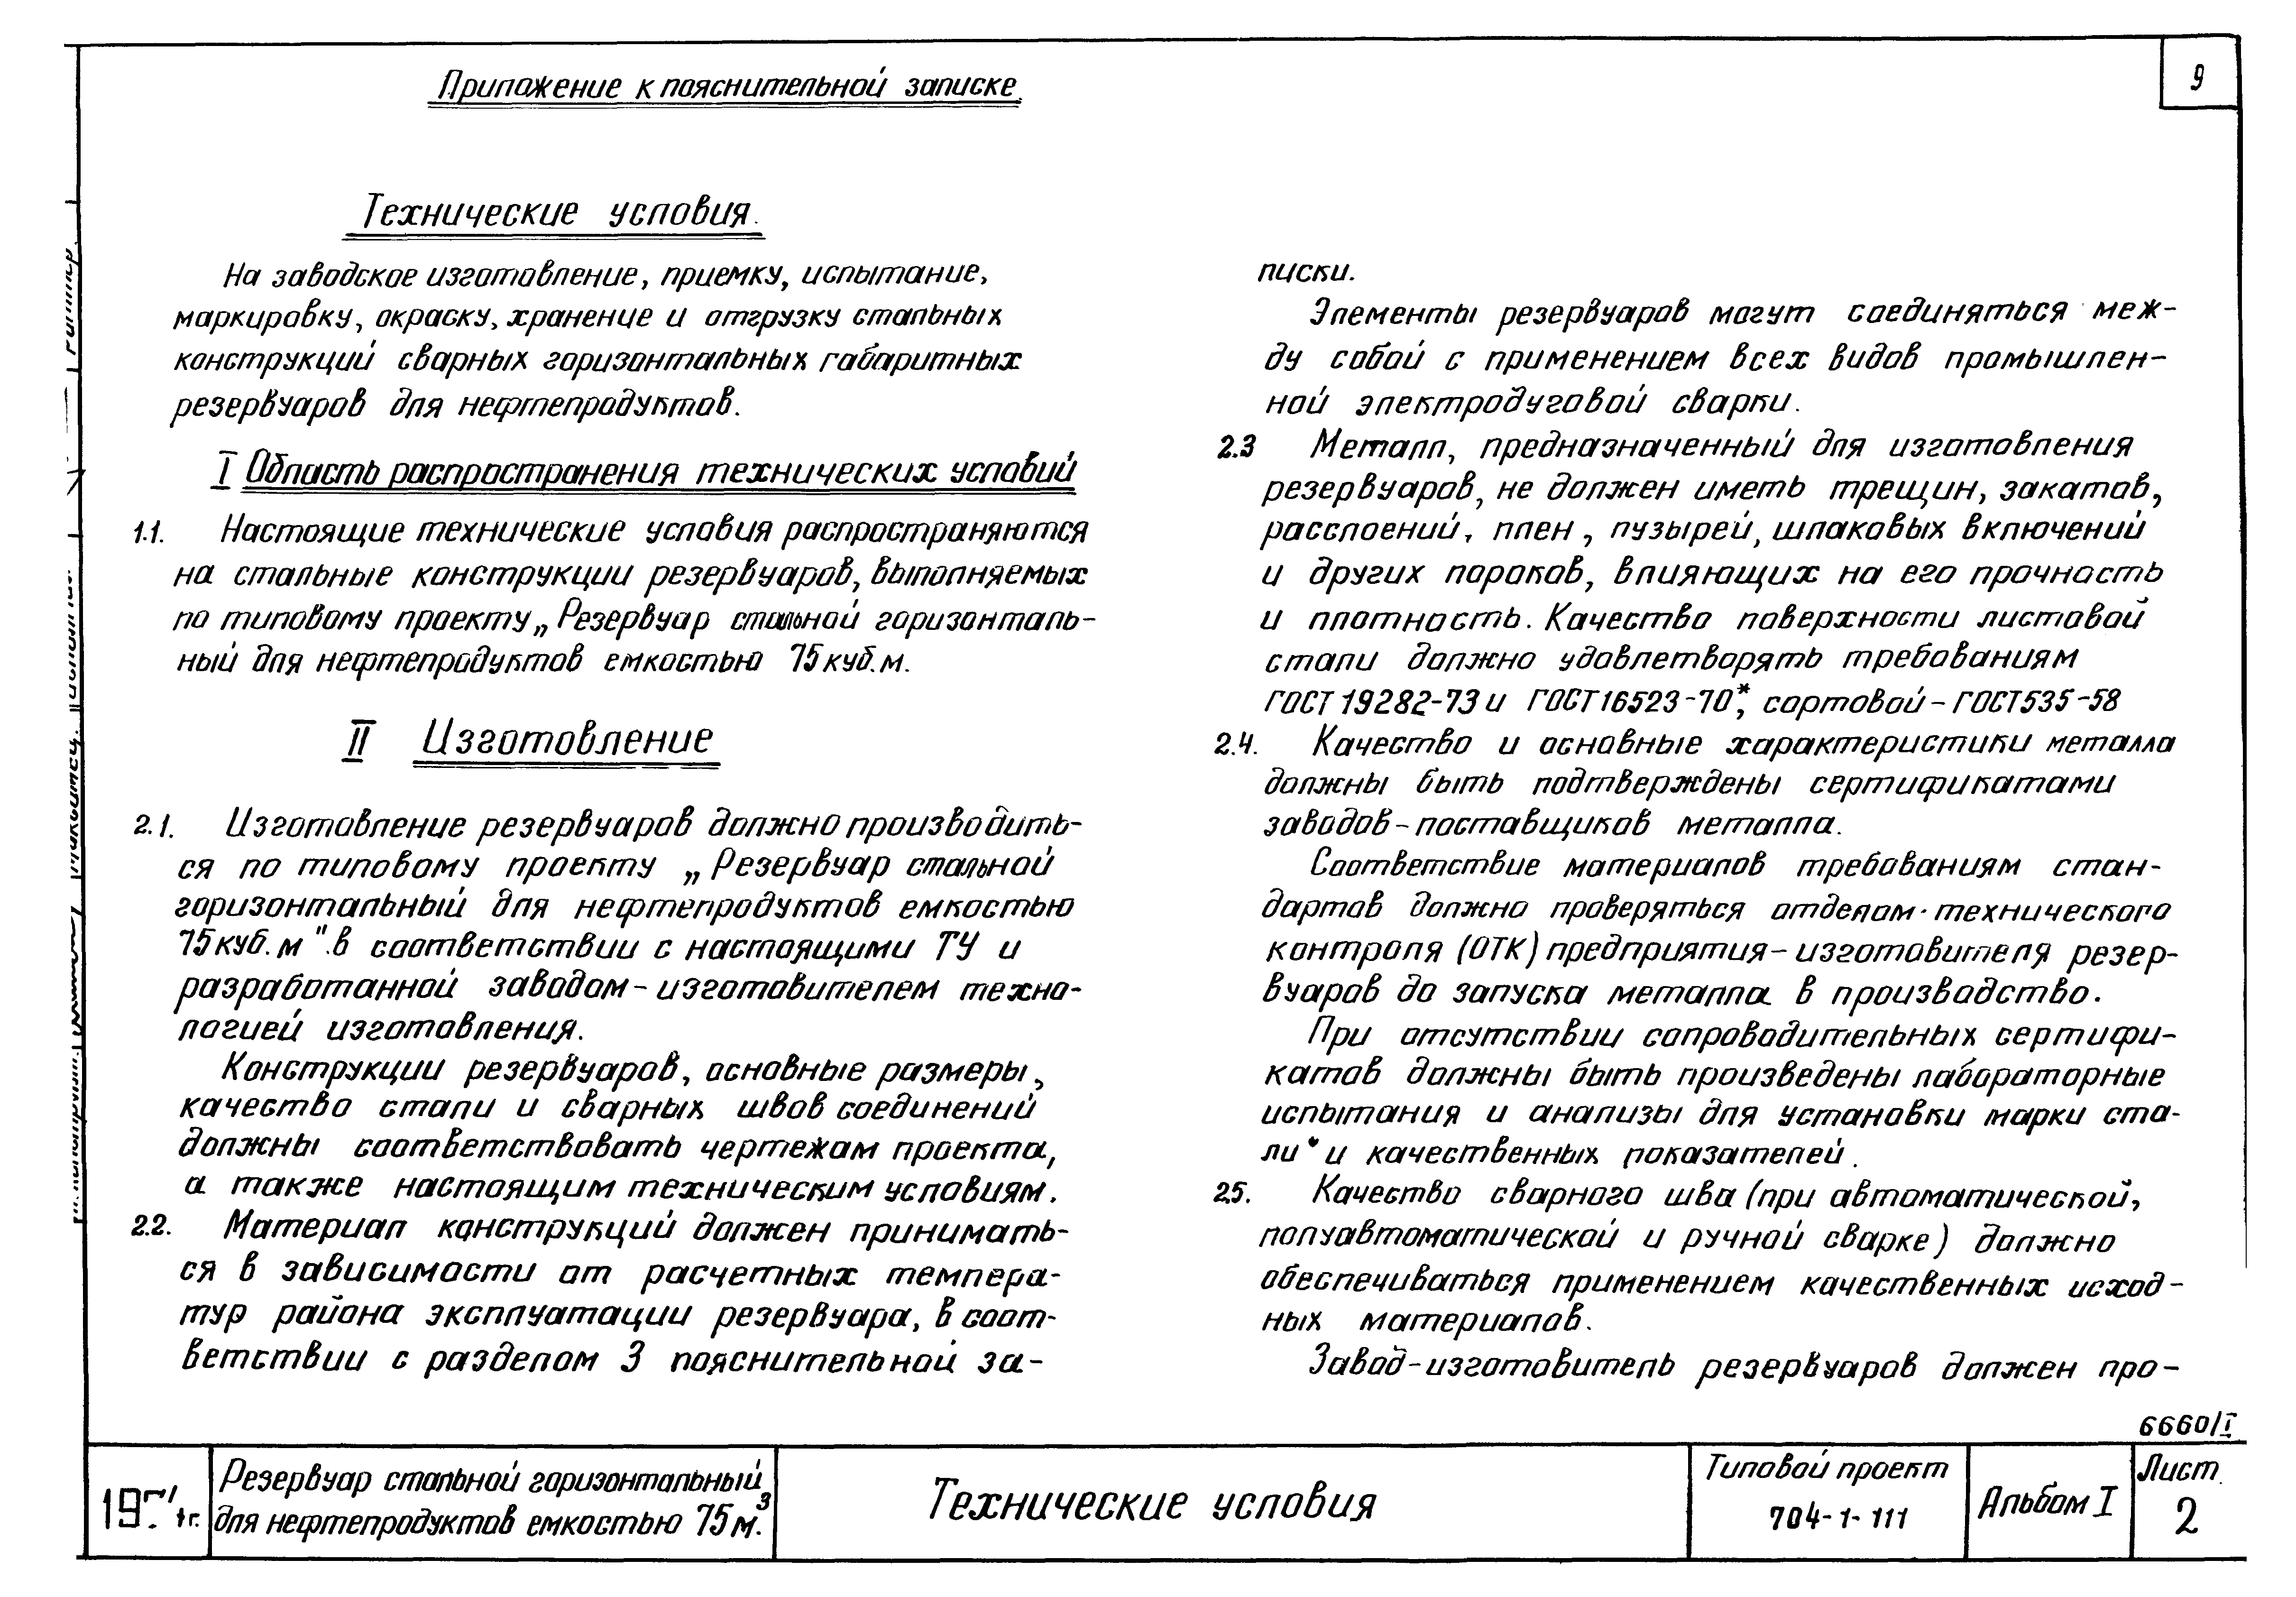 Приложение к пояснительной записке.
9
Технические условия.
На заводское изготовление, приемку, испытание,
маркировку, окраску, хранение и отгрузку стальных
конструкций сварных горизонтальных габаритных
резервуаров для нефтепродуктов.
I Область распространения технических условий
1.1. Настоящие технические условия распространяются
на стальные конструкции резервуаров, выполняемых
по типовому проекту „Резервуар стальной горизонталь-
ный для нефтепродуктов емкостью 75 куб. м.
II Изготовление
2.1. Изготовление резервуаров должно производить-
ся по типовому проекту „Резервуар стальной
горизонтальный для нефтепродуктов емкостью
75 куб. м". в соответствии с настоящими ТУ и
разработанной заводом-изготовителем техно-
логией изготовления.
Конструкции резервуаров, основные размеры,
качество стали и сварных швов соединений
должны соответствовать чертежам проекта,
а также настоящим техническим условиям.
2.2. Материал конструкций должен принимать-
ся в зависимости от расчетных темпера-
тур района эксплуатации резервуара, в соот-
ветствии с разделом 3 пояснительной за-
писки.
Элементы резервуаров могут соединяться меж-
ду собой с применением всех видов промышлен-
ной электродуговой сварки.
2.3 Металл, предназначенный для изготовления
резервуаров, не должен иметь трещин, закатов,
расслоений, плен, пузырей, шлаковых включений
и других пороков, влияющих на его прочность
и плотность. Качество поверхности листовой
стали должно удовлетворять требованиям
ГОСТ 19282-73 и ГОСТ 16523-70*, сортовой - ГОСТ 535-58
2.4. Качество и основные характеристики металла
должны быть подтверждены сертификатами
заводов-поставщиков металла.
Соответствие материалов требованиям стан-
дартов должно проверяться отделом технического
контроля (ОТК) предприятия-изготовителя резер-
вуаров до запуска металла в производство.
При отсутствии сопроводительных сертифи-
катов должны быть произведены лабораторные
испытания и анализы для установки марки ста-
ли и качественных показателей.
2.5. Качество сварного шва (при автоматической,
полуавтоматической и ручной сварке) должно
обеспечиваться применением качественных исход-
ных материалов.
Завод-изготовитель резервуаров должен про-
6660/I
Резервуар стальной горизонтальный
для нефтепродуктов емкостью 75 м³.
Технические условия
Типовой проект
704-1-111
Альбом I
Лист
2